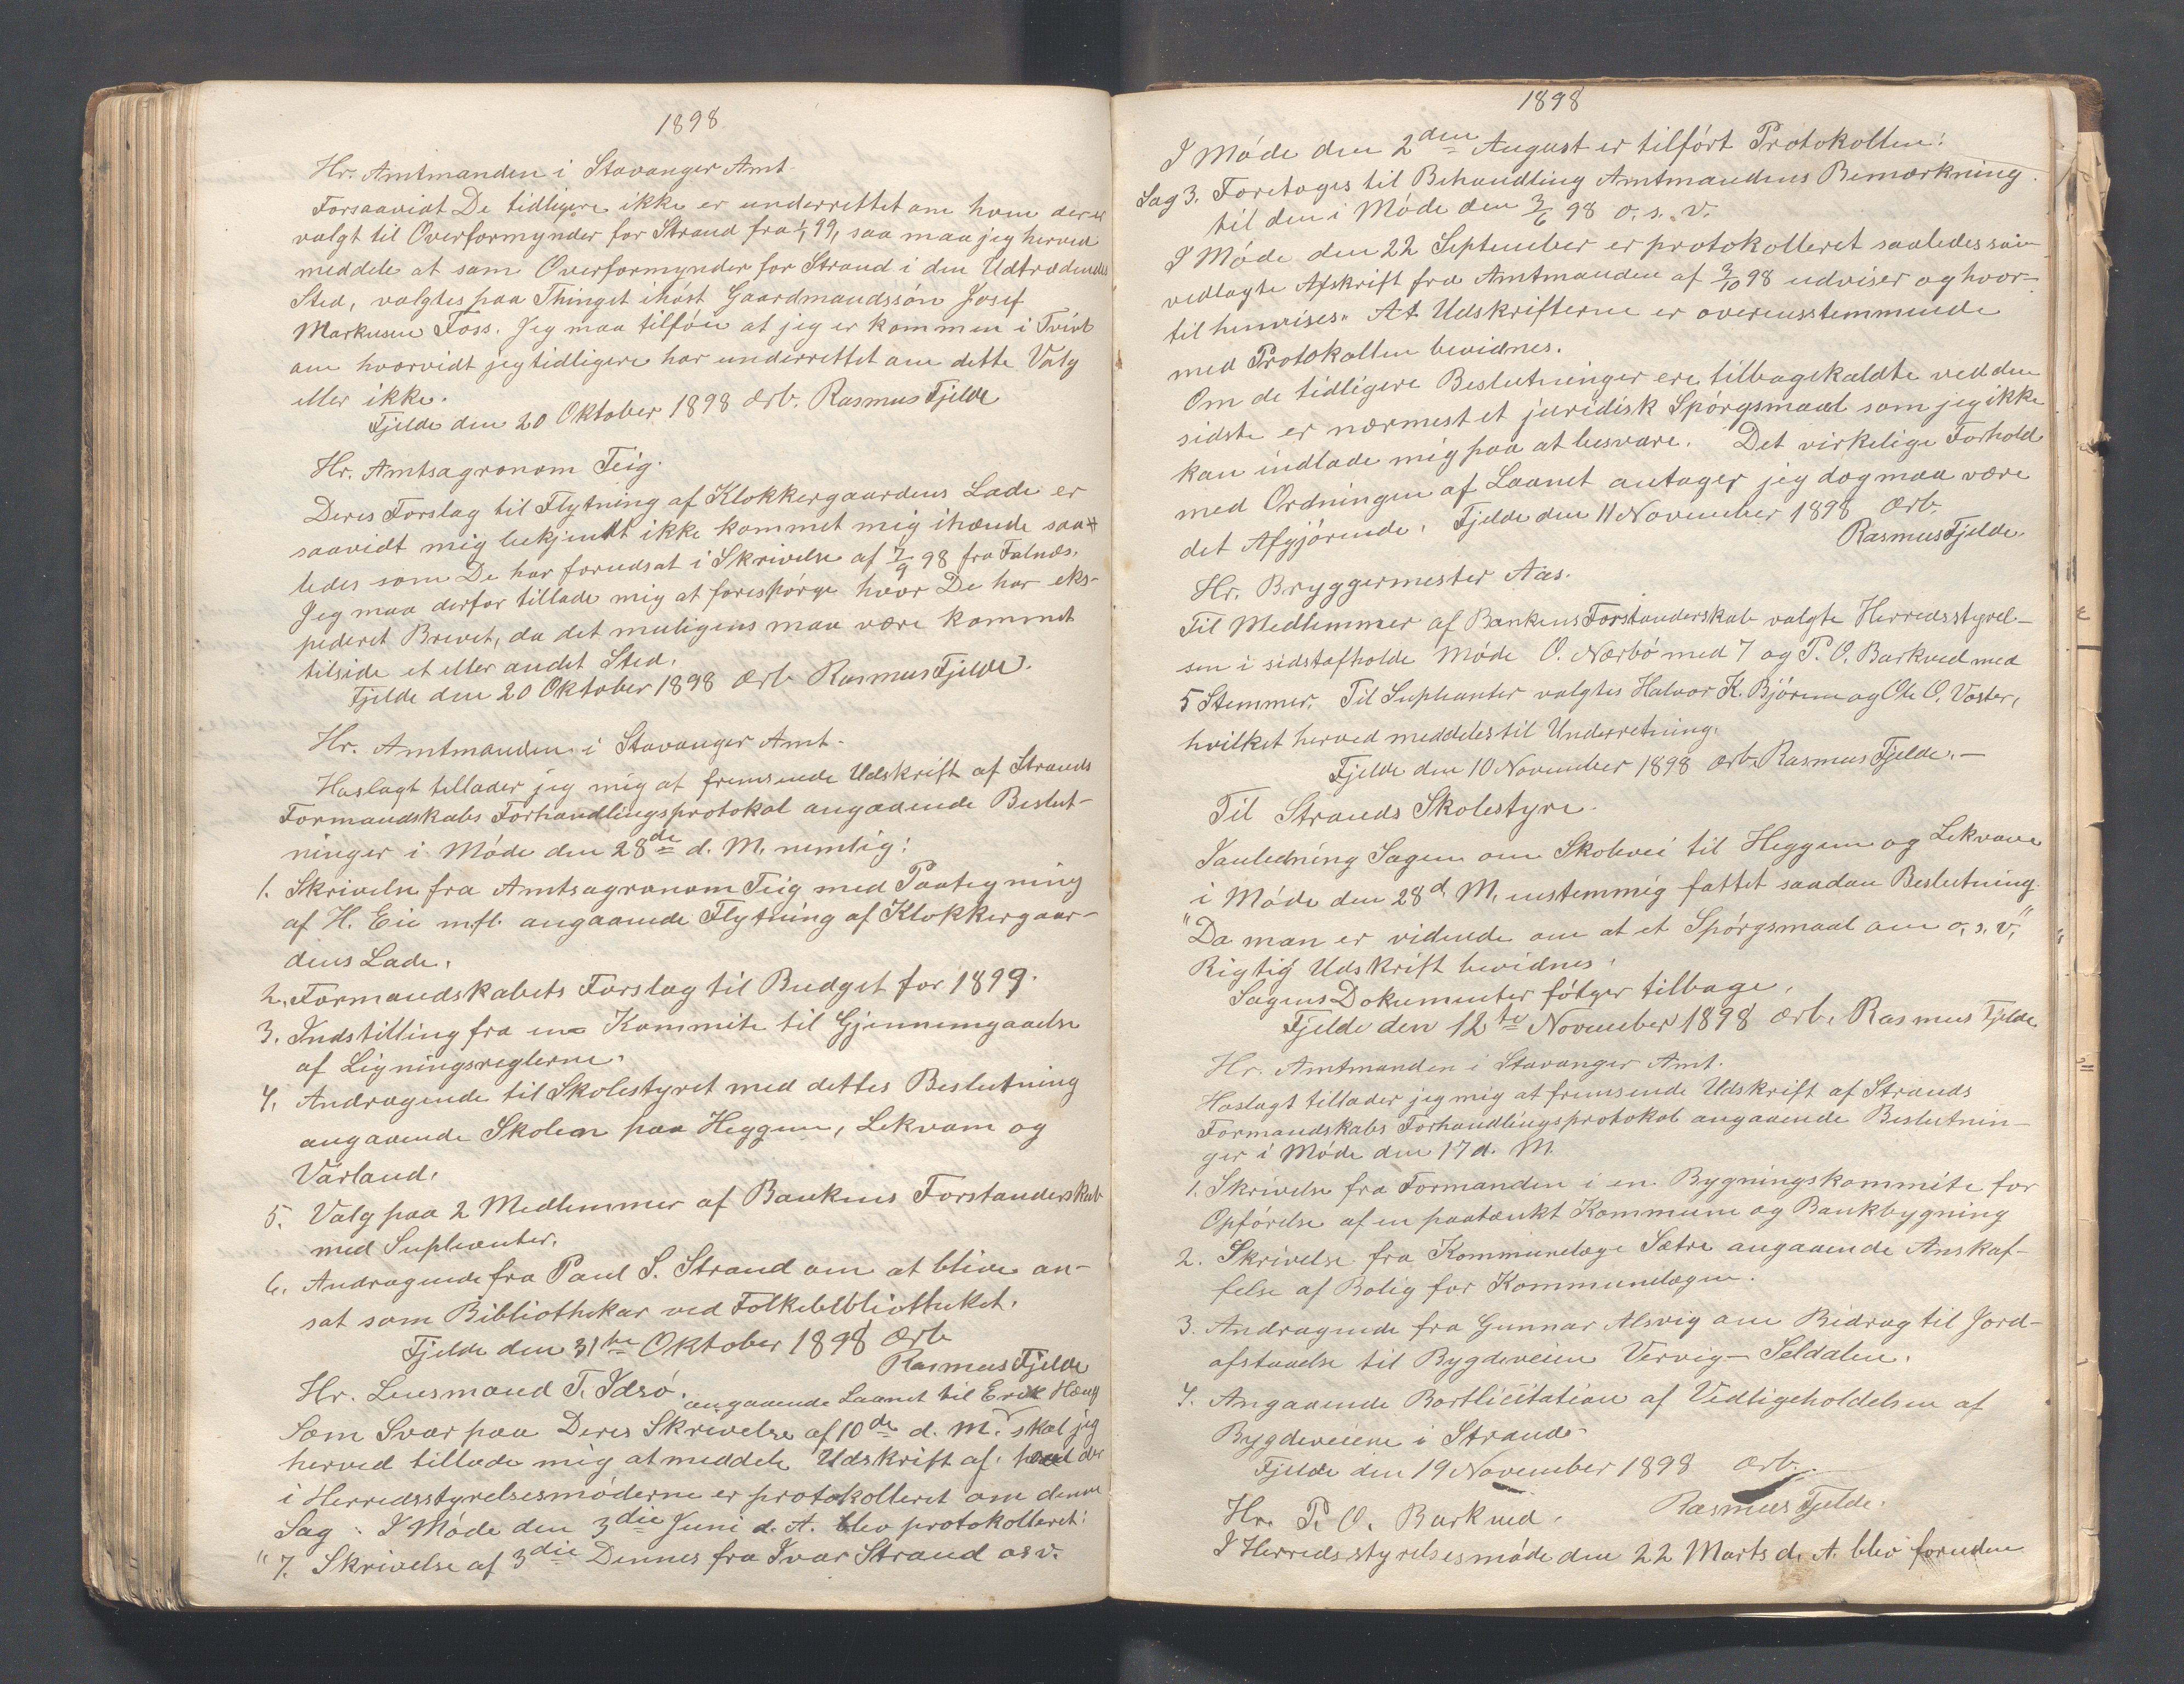 1898
Hr. Amtmanden i Stavanger Amt.
Forsaavidt De tidligere ikke er underrettet om hvem der er
valgt til Overformynder for Strand fra 1/1 99, saa maa jeg herved
meddele at som Overformynder for Strand i den Udtrædendes
Sted, valgtes paa Thinget ihøst Gaardmandssøn Josef
Markusen Foss. Jeg maa tilføie at jeg er kommen i Tvivl
om hvorvidt jeg tidligere har underrettet om dette Valg
eller ikke.
Fjelde den 20 Oktober 1898 Ærb. Rasmus Fjelde
Hr. Amtsagronom Teig.
Deres Forslag til Flytning af Klokkergaardens Lade er
saavidt mig bekjendt ikke kommet mig ihænde saa-
ledes som De har forudsat i Skrivelse af 7/9 98 fra Falnæs.
Jeg maa derfor tillade mig at forespørge hvor De har eks-
pederet Brevet, da det muligens maa være kommet
tilside et eller andet Sted.
Fjelde den 20 Oktober 1898 Ærb Rasmus Fjelde.
Hr. Amtmanden i Stavanger Amt.
Hoslagt tillader jeg mig at fremsende Udskrift af Strands
Formandskabs Forhandlingsprotokol angaaende Beslut-
ninger i Møde den 28de d. M. nemlig:
1. Skrivelse fra Amtsagronom Teig med Paategning
af H. Eie m.fl. angaaende Flytning af Klokkergaar-
dens Lade.
2. Formandskabets Forslag til Budget for 1899.
3. Indstilling fra en Kommite til Gjennemgaaelse
af Ligningsreglerne.
4. Andragende til Skolestyret med dettes Beslutning
angaaende Skolen paa Heggem, Lekvam og
Varland.
5. Valg paa 2 Medlemmer af Bankens Forstanderskab
med Supleanter.
6. Andragende fra Paul S. Strand om at blive an-
sat som Bibliothekar ved Folkebibliotheket.
Fjelde den 31te Oktober 1898 Ærb
Rasmus Fjelde
Hr. Lensmand T. Idsø.
angaaende Laanet til Erik
Som Svar paa Deres Skrivelse af 10de d. M. skal jeg
herved tillade mig at meddele Udskrift af hvad der
i Herredsstyrelsesmøderne er protokolleret om denne
Sag. I Møde den 3die Juni d. A. blev protokolleret:
"7. Skrivelse af 3die Dennes fra Ivar Strand osv.
1898
I Møde den 2den August er tilført Protokollen:
Sag 3. Foretoges til Behandling Amtmandens Bemærkning
til den i Møde den 3/6 98 o. s. v.
I Møde den 22 September er protokolleret saaledes som
vedlagte Afskrift fra Amtmanden af 3/10 98 udviser og hvor-
til henvises. At Udskrifterne er overensstemmende
med Protokollen bevidnes.
Om de tidligere Beslutninger ere tilbagekaldte ved den
sidste er nærmest et juridisk Spørgsmaal som jeg ikke
kan indlade mig paa at besvare. Det virkelige Forhold
med Ordningen af Laanet antager jeg dog maa være
det Afgjørende. Fjelde den 11 November 1898 Ærb.
Rasmus Fjelde.
Hr. Bryggermester Aas.
Til Medlemmer af Bankens Forstanderskab valgte Herredsstyrel-
sen i sidstafholde Møde O. Nærbø med 7 og P. O. Barkved med
5 Stemmer. Til Supleanter valgtes Halvor K. Bjørem og Ole O. Voster,
hvilket herved meddeles til Underretning.
Fjelde den 10 November 1898 Ærb. Rasmus Fjelde.-
Til Strands Skolestyre.
Ianledning Sagen om Skolevei til Heggem og Lekvam
i Møde den 28 d. M. enstemmig fattet saadan Beslutning.
"Da man er vidende om at et Spørgsmaal om o. s. v."
Rigtig Udskrift bevidnes.
Sagens Dokumenter følger tilbage.
Fjelde den 12te November 1898 Ærb. Rasmus Fjelde
Hr. Amtmanden i Stavanger Amt.
Hoslagt tillader jeg mig at fremsende Udskrift af Strands
Formandskabs Forhandlingsprotokol angaaende Beslutnin-
ger i Møde den 17 d. M.
1. Skrivelse fra Formanden i en Bygningskommite for
Opførelse af en paatænkt Kommune og Bankbygning
2. Skrivelse fra Kommunelæge Sætre angaaende Anskaf-
felse af Bolig for Kommunelægen.
3. Andragende fra Gunnar Alsvig om Bidrag til Jord-
afstaaelse til Bygdeveien Vervig - Seldalen.
4. Angaaende Bortlicitation af Vedligeholdelsen af
Bygdeveiene i Strand.
Fjelde den 19 November 1898 Ærb.
Rasmus Fjelde.
Hr. P. O. Barkved.
I Herredsstyrelsesmøde den 22 Marts d. A. blev foruden